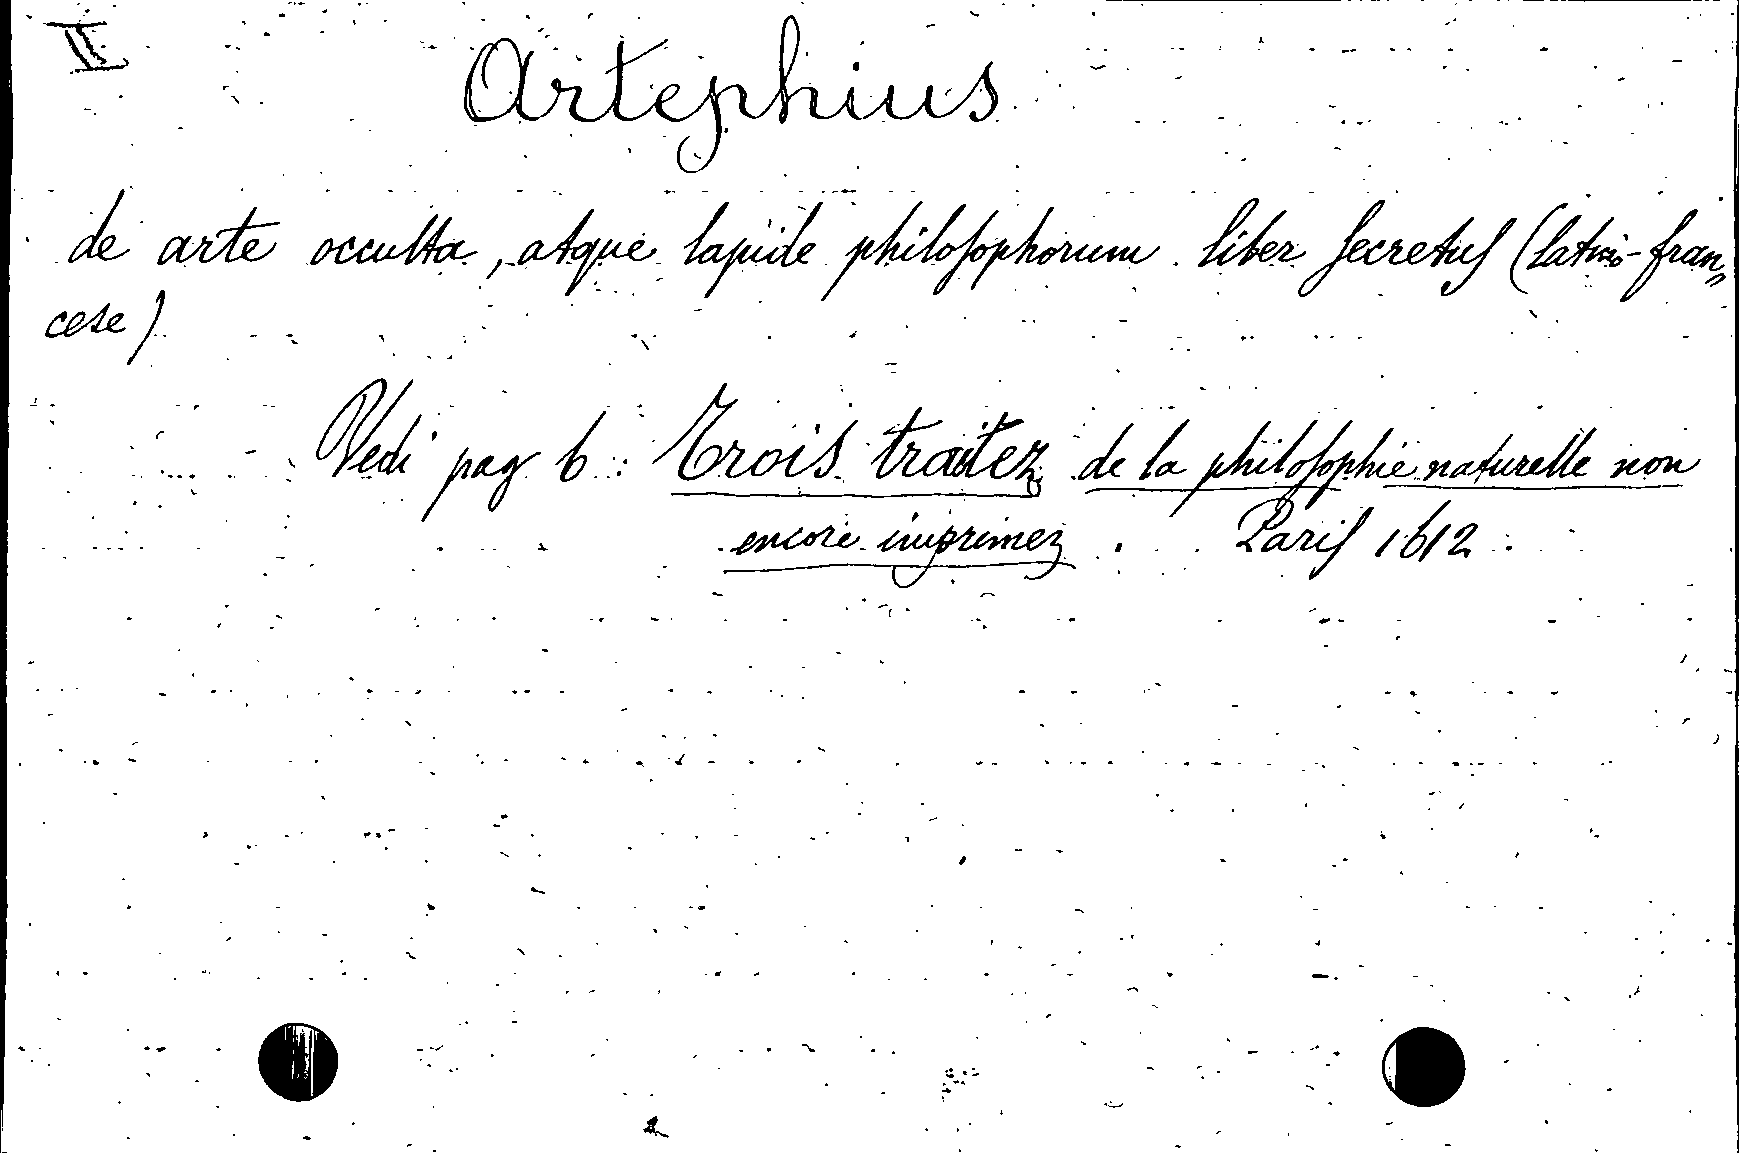 II
Artephius
de arte occulta, atque lapide philosophorum liber secretus (latino-fran„
cese)
Vedi pag 6: Trois traitez de la philosophie naturelle non
encore imprimez. Paris 1612.